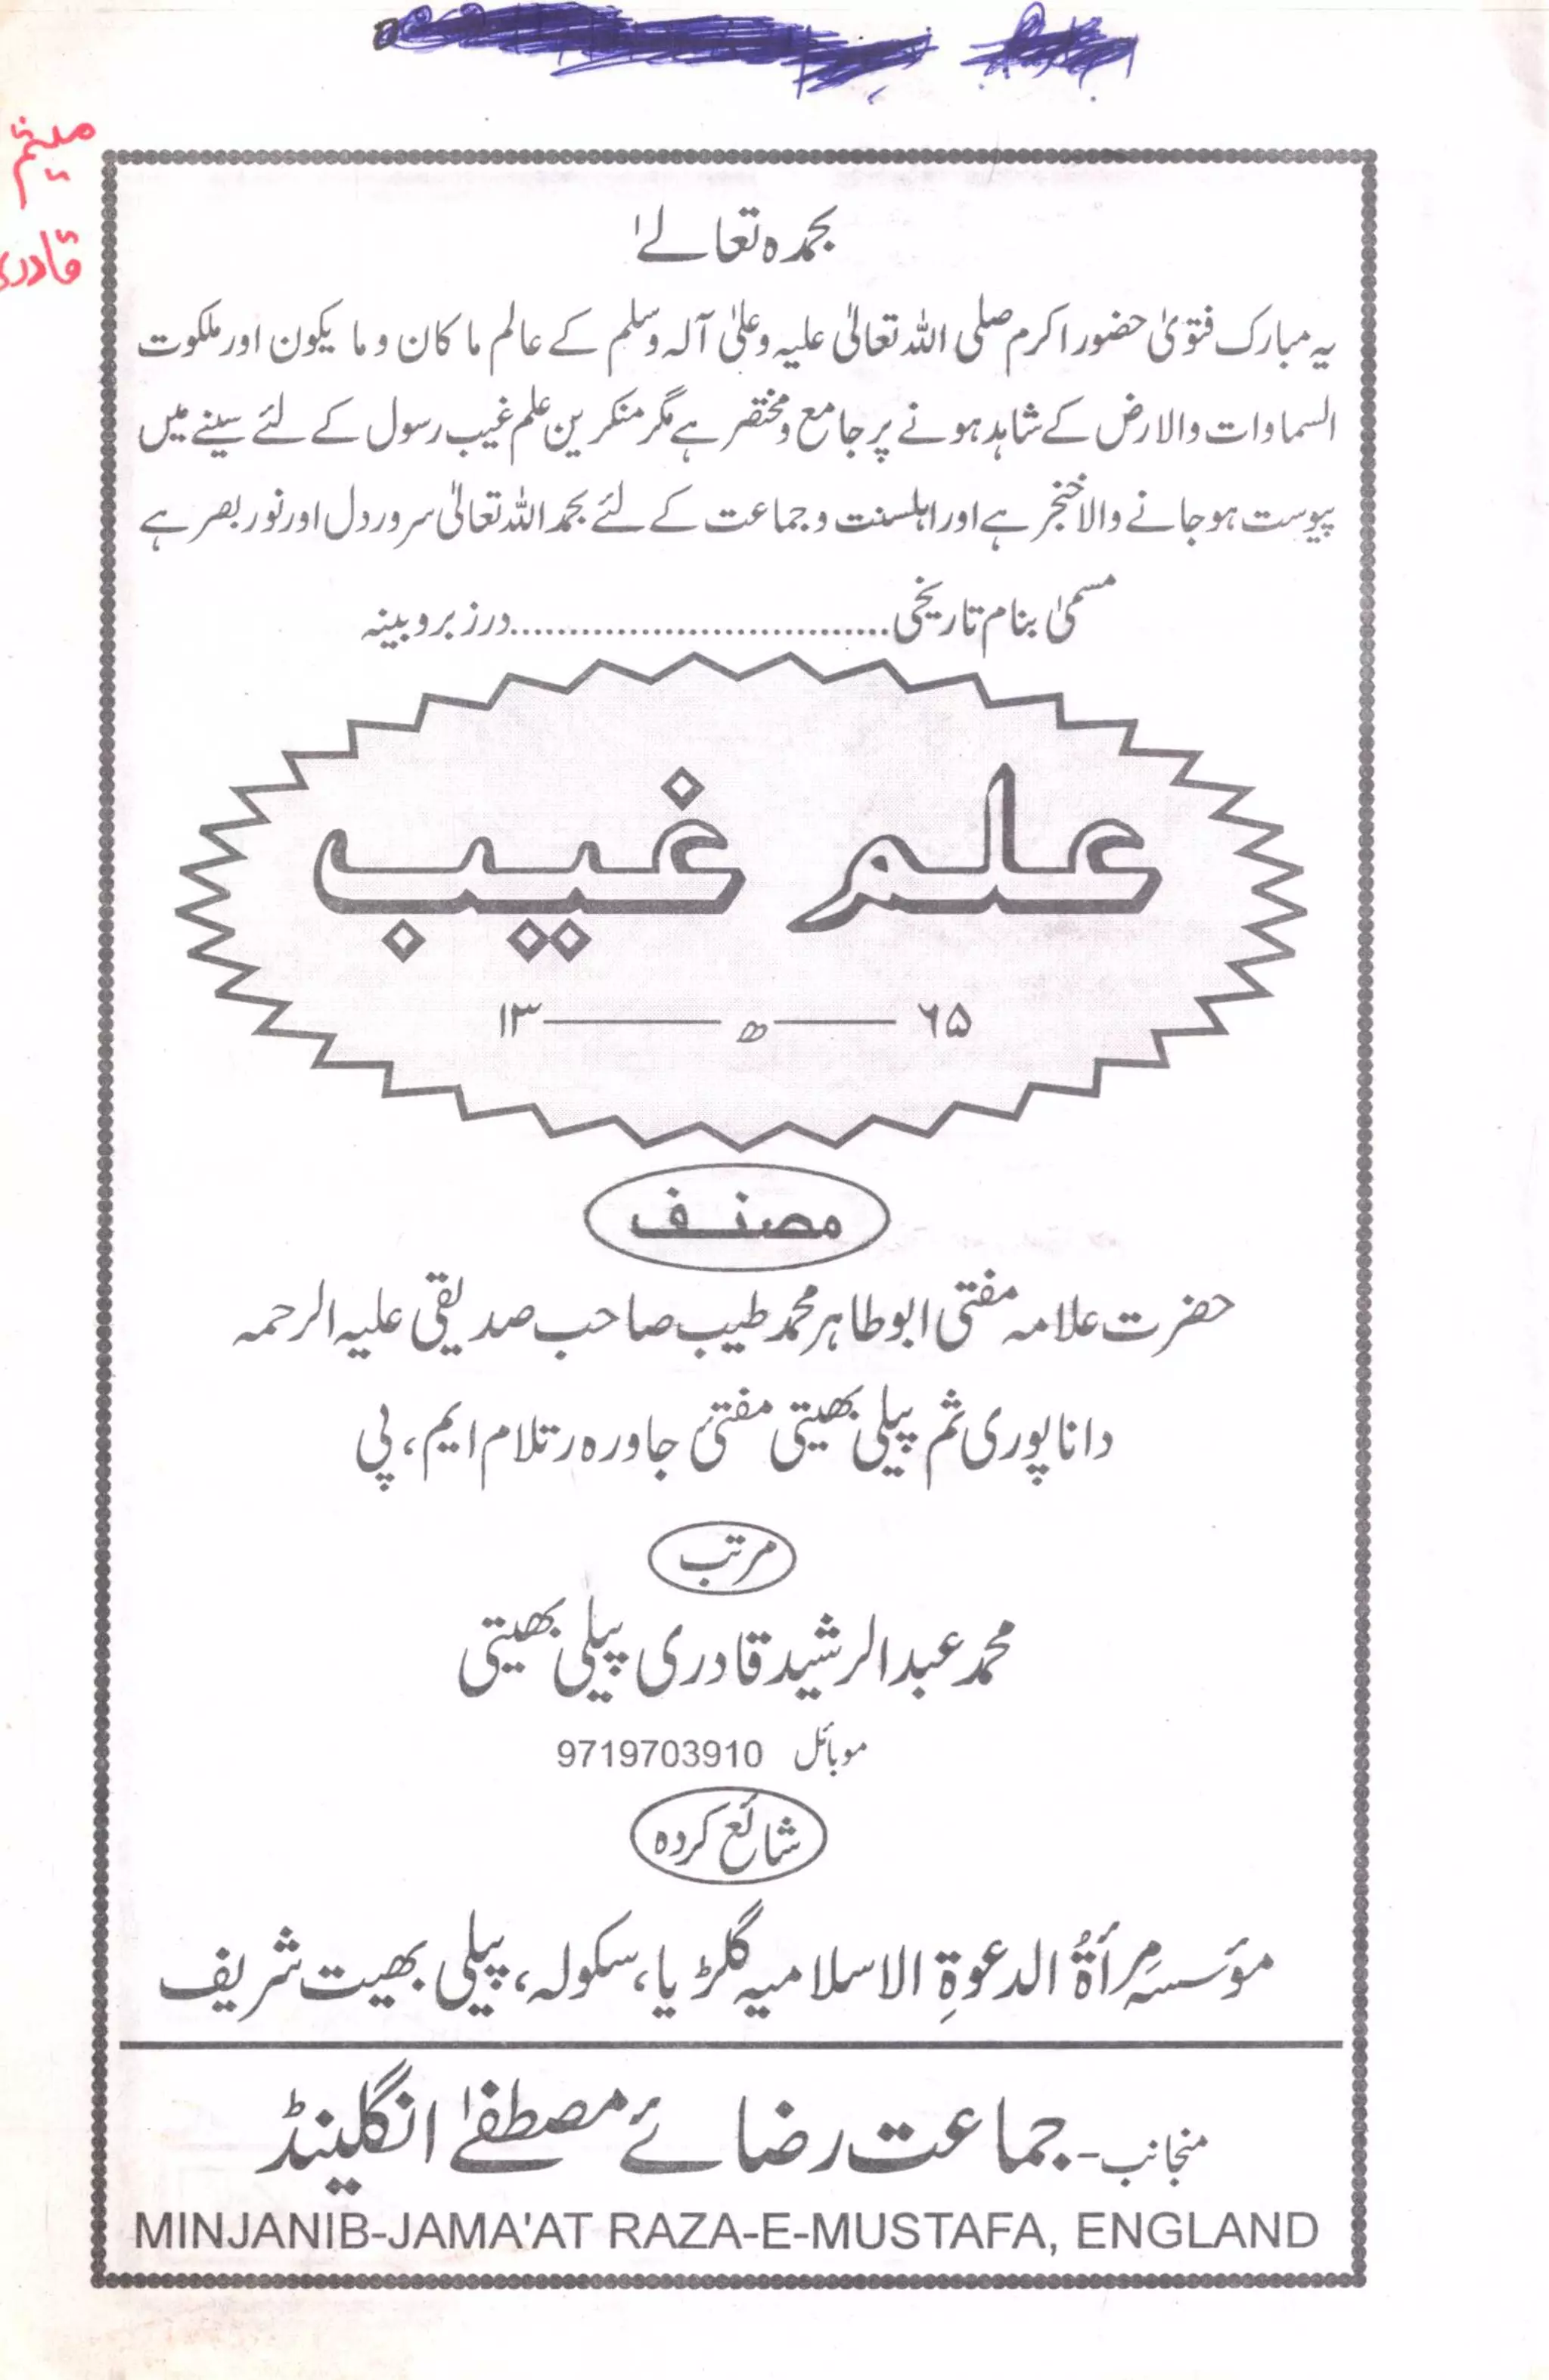 میثم
قادری
بحمدہ تعالےٰ
یہ مبارک فتویٰ حضور اکرم صلی اللہ تعالیٰ علیہ وعلیٰ آلہ وسلم کے عالم ما کان و ما یکون اور ملکوت
السماوات والارض کے شاہد ہونے پر جامع و مختصر ہے مگر منکرین علم غیب رسول کے لئے سینے میں
پیوست ہوجانے والا خنجر ہے اور اہلسنت و جماعت کے لئے بحمد اللہ تعالیٰ سرور دل اور نور بصر ہے
مسمیٰ بنام تاریخی................................درز بر و بینہ
علم غیب
۱۳ ھ ۶۵
مصنف
حضرت علامہ مفتی ابو طاہر محمد طیب صاحب صدیقی علیہ الرحمہ
دانا پوری ثم پیلی بھیتی مفتیٔ جاورہ رتلام ایم، پی
مرتب
محمد عبدالرشید قادری پیلی بھیتی
موبائل 9719703910
شائع کردہ
مؤسسہ مِرأۃُ الدعوۃِ الاسلامیہ گلڑیا، سکولہ، پیلی بھیت شریف
منجانب - جماعت رضائے مصطفےٰ انگلینڈ
MINJANIB-JAMA'AT RAZA-E-MUSTAFA, ENGLAND